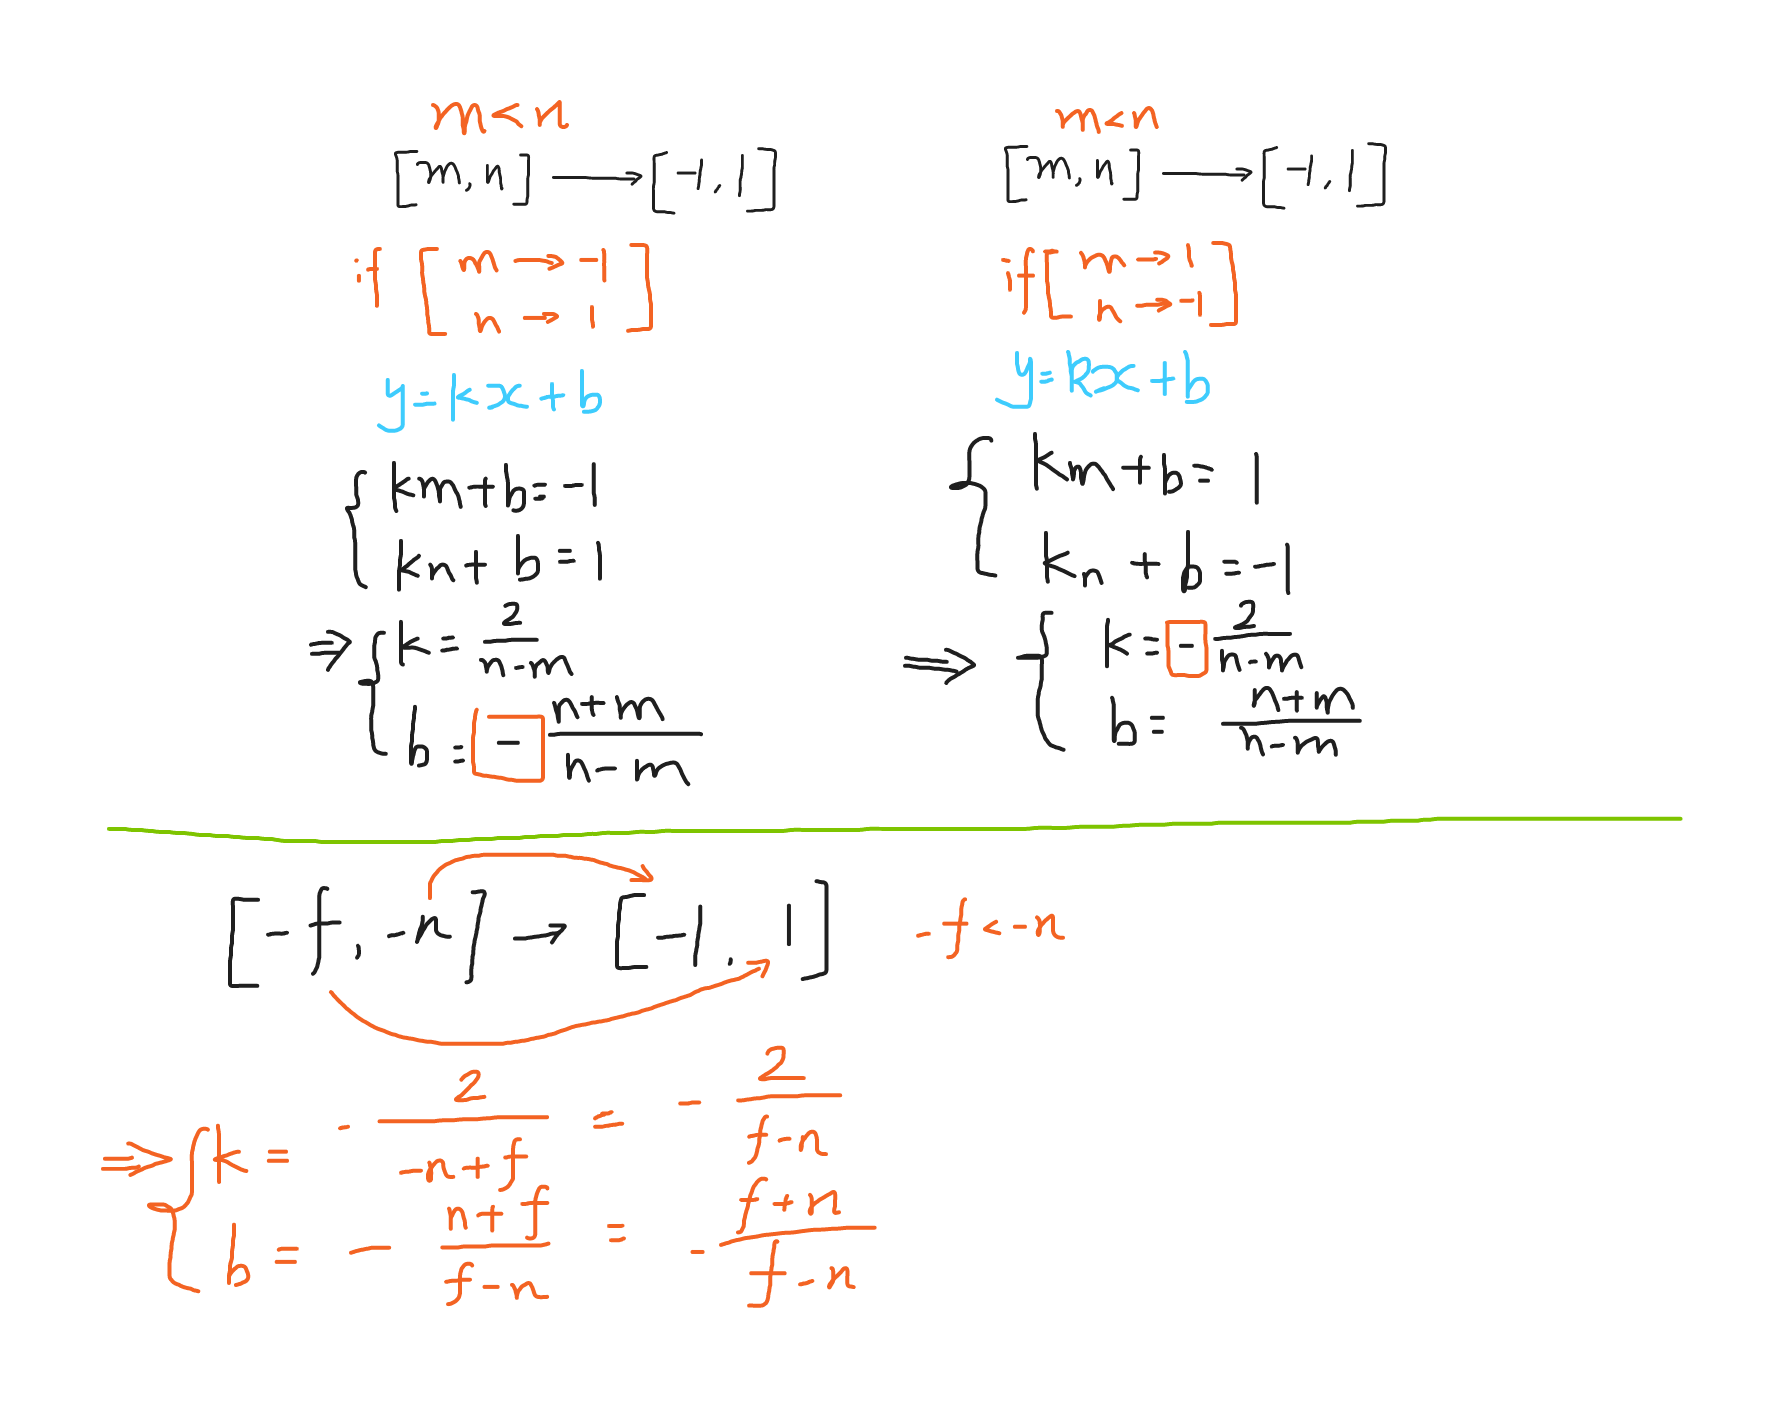 m < n
[m, n] → [-1, 1]
if [ m → -1
n → 1 ]
y = kx + b
{ km + b = -1
kn + b = 1
⇒ { k = 2/(n-m)
b = - (n+m)/(n-m)
m < n
[m, n] → [-1, 1]
if [ m → 1
n → -1 ]
y = kx + b
{ km + b = 1
kn + b = -1
⇒ { k = - 2/(n-m)
b = (n+m)/(n-m)
[-f, -n] → [-1, 1] -f < -n
⇒ { k = - 2/(-n+f) = - 2/(f-n)
b = - (n+f)/(f-n) = - (f+n)/(f-n)